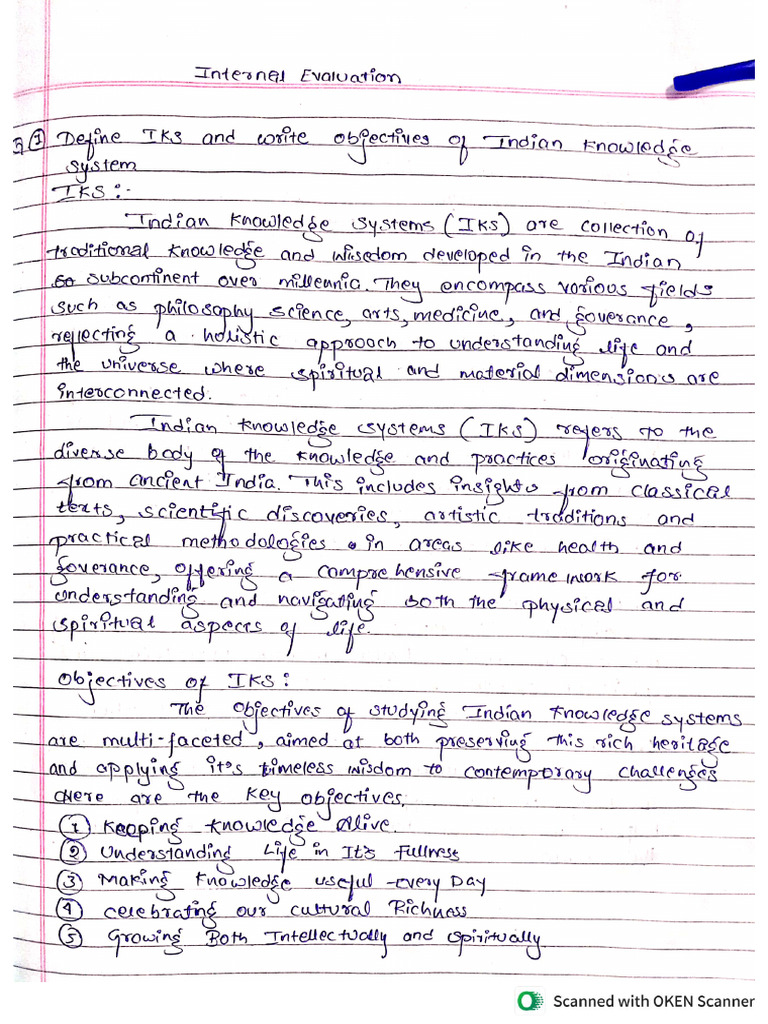 Internal Evaluation
Q① Define IKS and write objectives of Indian Knowledge
system
IKS :-
Indian Knowledge Systems (IKS) are collection of
traditional knowledge and wisdom developed in the Indian
subcontinent over millennia. They encompass various fields
such as philosophy science, arts, medicine, and goverance,
reflecting a holistic approach to understanding life and
the universe where spiritual and material dimensions are
interconnected.
Indian Knowledge Systems (IKS) refers to the
diverse body of the knowledge and practices originating
from ancient India. This includes insights from classical
texts, scientific discoveries, artistic traditions and
practical methodologies in areas like health and
goverance, offering a comprehensive frame work for
understanding and navigating both the physical and
spiritual aspects of life.
Objectives of IKS :
The objectives of studying Indian Knowledge systems
are multi-faceted, aimed at both preserving this rich heritage
and applying it's timeless wisdom to contemporary challenges
Here are the key objectives.
① Keeping Knowledge Alive.
② Understanding Life in It's Fullness
③ Making Knowledge useful -every Day
④ Celebrating our cultural Richness
⑤ Growing Both Intellectually and spiritually
Scanned with OKEN Scanner